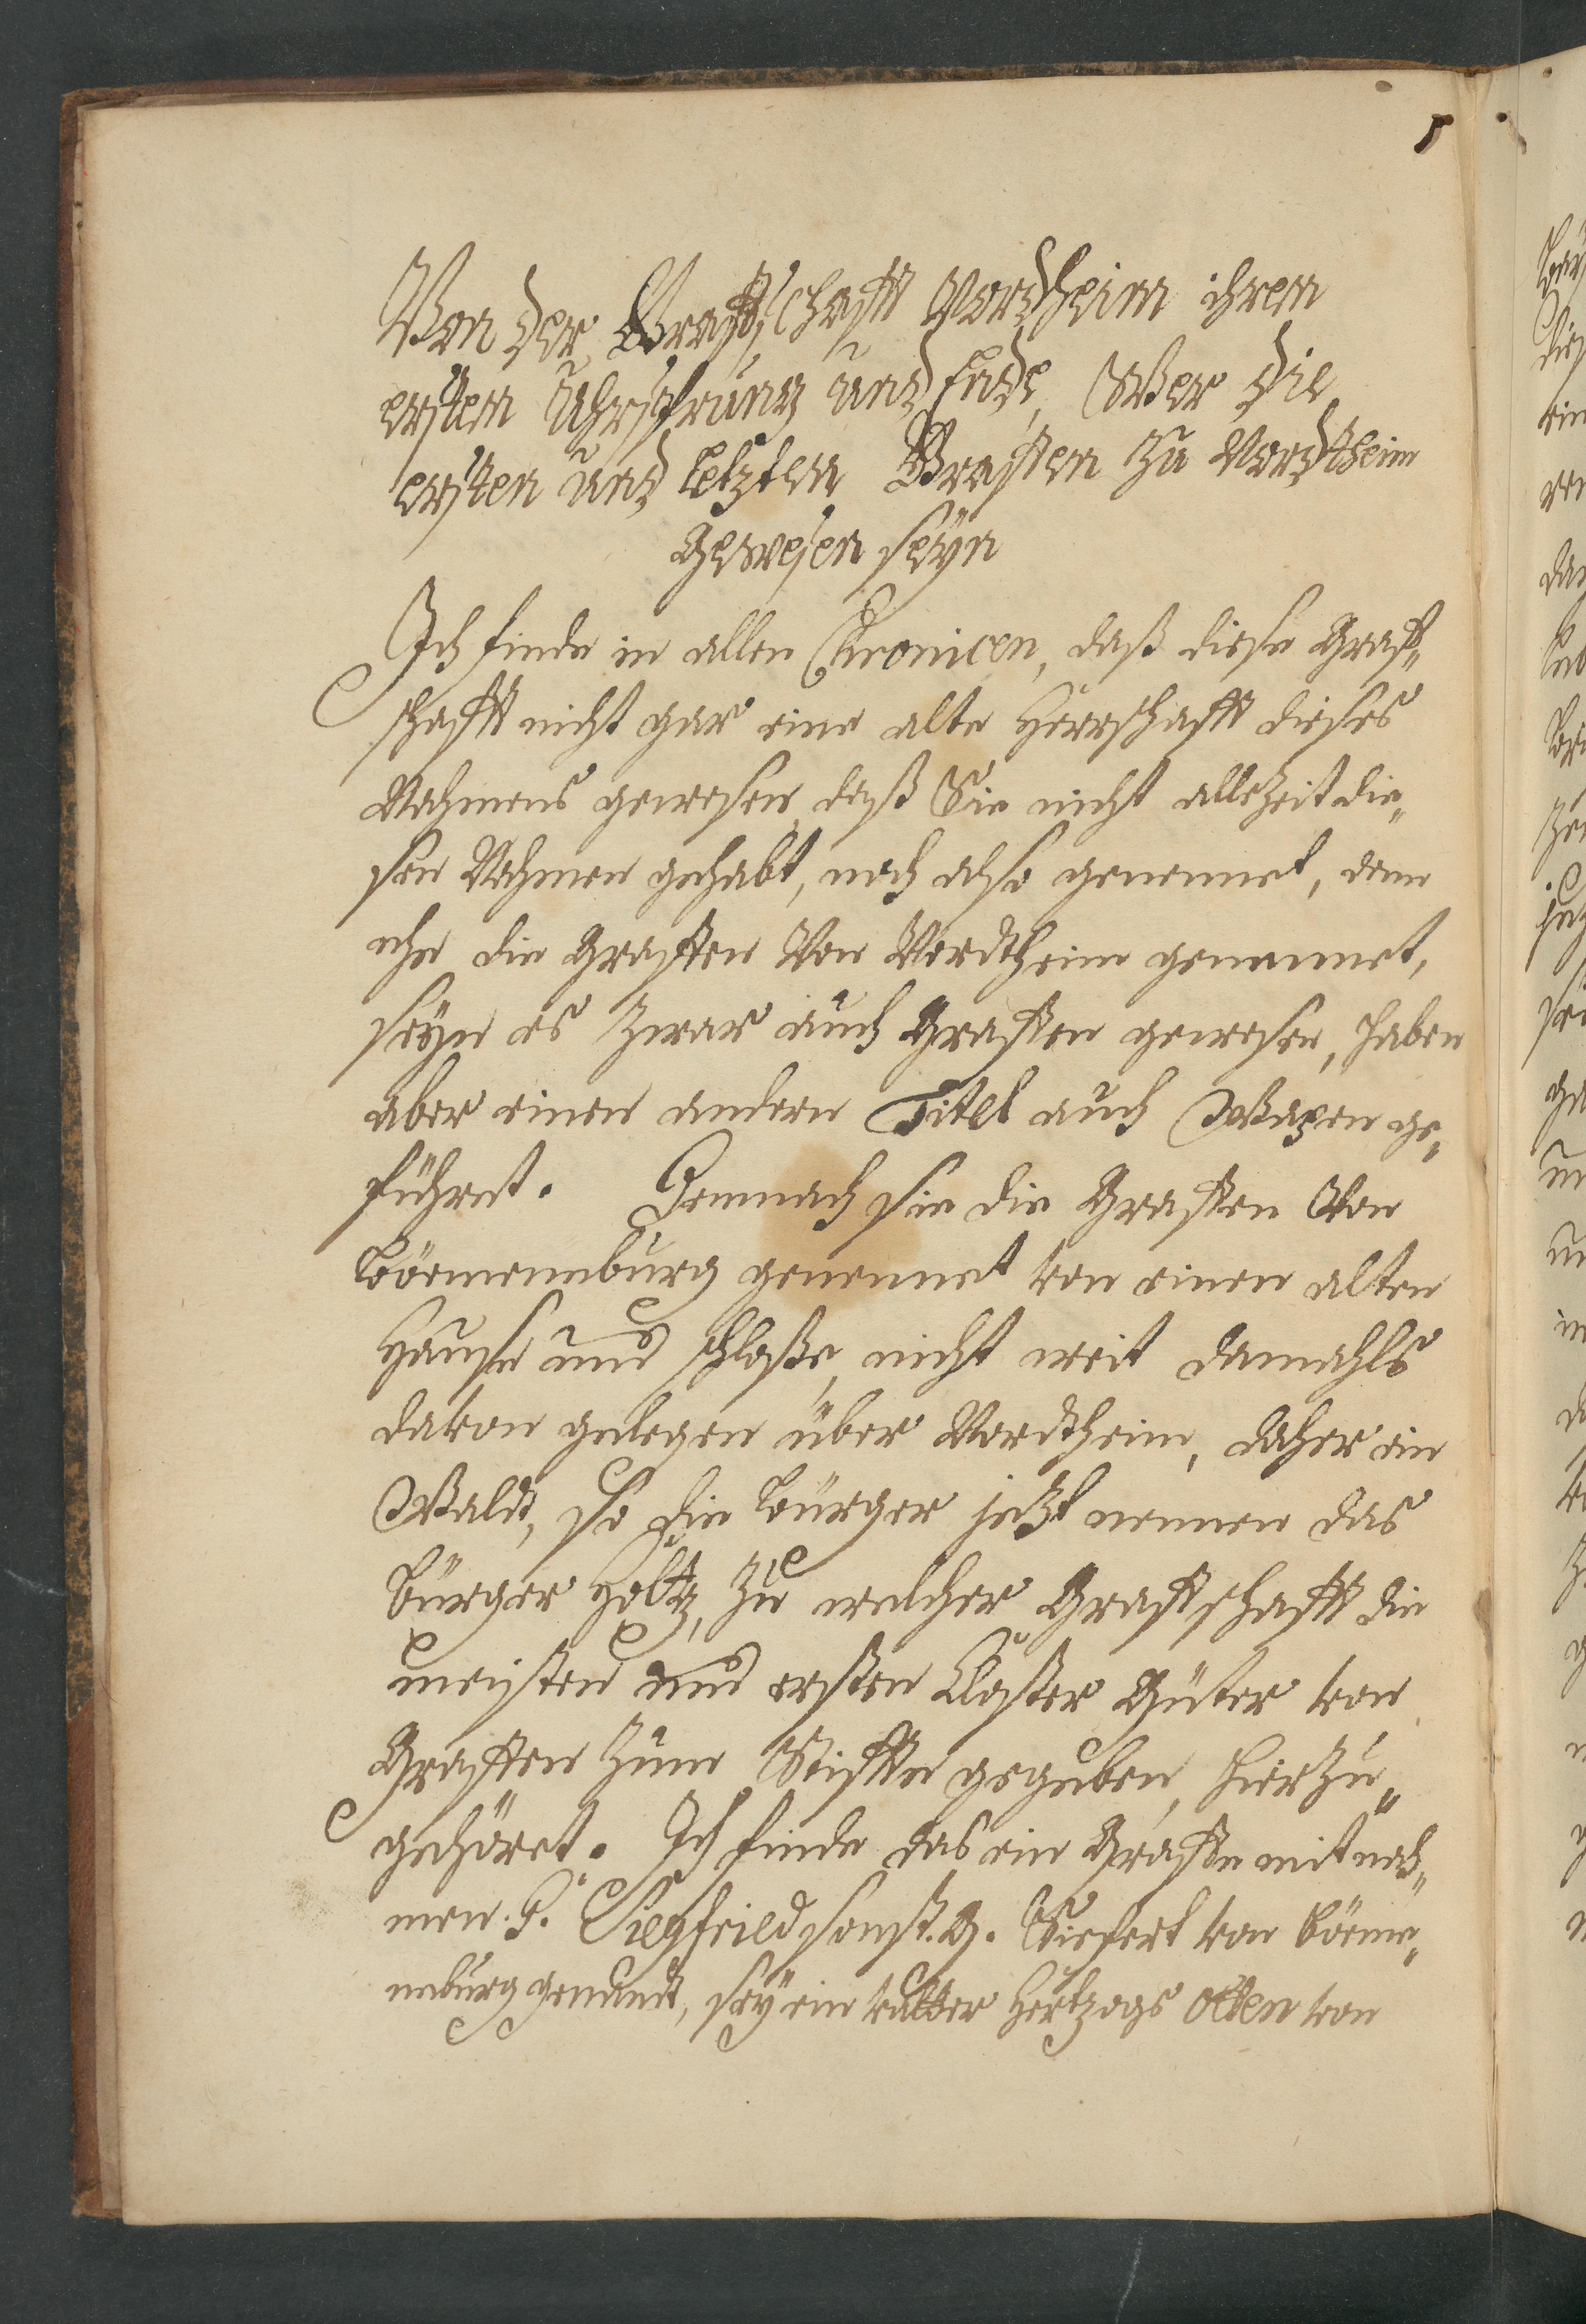 5
Von der Graffschafft Nordheim ihrem
ersten Uhrsprung und Ende, Wer die
ersten und letzten Graffen zu Nordtheim
gewesen seyn
Ich finde in allen Chronicen, daß diese Graff„
schafft nicht gar eine alte Herrschafft dieses
Nahmens gewesen, daß Sie nicht allezeit die„
sen Nahmen gehabt, noch also genennet, denn
ehe die Graffen Von Nordtheim genennet,
seyn es Zwar auch Graffen gewesen, haben
aber einen andern Titel auch Wapen ge„
führet. Demnach sie die Graffen Von
Böemeneburg genennet von einen alten
Hause und schloße, nicht weit damahls
davon gelegen über Nordtheim, daher ein
Waldt, so die Bürger jetzt nennen das
Bürger Holtz, Zu welcher Graffschafft die
meisten und ersten Closter Güter von
Graffen Zum Stiffte gegeben, hierzu„
gehöret. Ich finde das ein Graffe mit nah„
men. G. Siegfried sonst. G. Siefert von Böeme„
neburg genandt, sey ein vatter Hertzogs Otten von